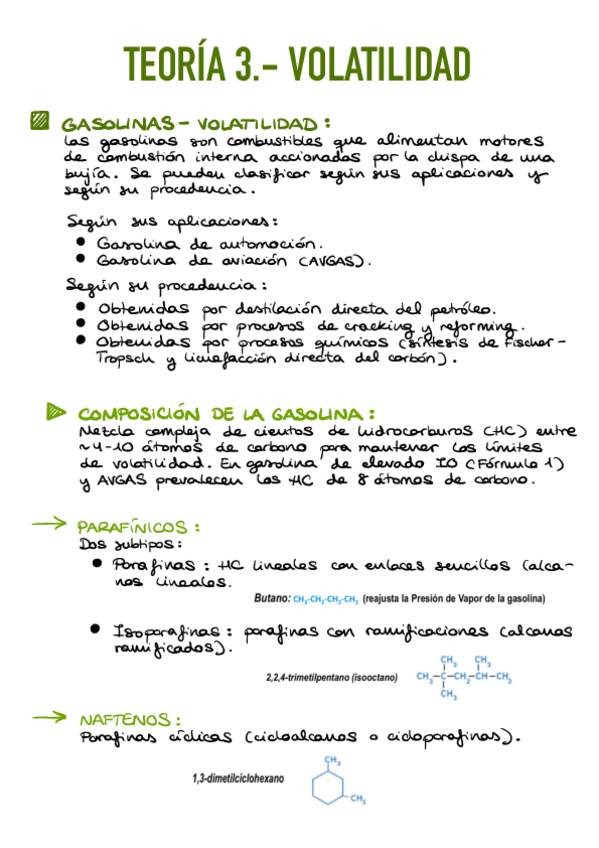 TEORÍA 3.- VOLATILIDAD
GASOLINAS - VOLATILIDAD:
Las gasolinas son combustibles que alimentan motores
de combustión interna accionados por la chispa de una
bujía. Se pueden clasificar según sus aplicaciones y
según su procedencia.
Según sus aplicaciones:
• Gasolina de automoción.
• Gasolina de aviación (AVGAS).
Según su procedencia:
• Obtenidas por destilación directa del petróleo.
• Obtenidas por procesos de cracking y reforming.
• Obtenidas por procesos químicos (síntesis de Fischer-
Tropsch y licuefacción directa del carbón).
COMPOSICIÓN DE LA GASOLINA:
Mezcla compleja de cientos de hidrocarburos (HC) entre
~4-10 átomos de carbono para mantener los límites
de volatilidad. En gasolina de elevado IO (Fórmula 1)
y AVGAS prevalecen los HC de 8 átomos de carbono.
→ PARAFÍNICOS:
Dos subtipos:
• Parafinas: HC lineales con enlaces sencillos (alca-
nos lineales.
Butano: CH₃-CH₂-CH₂-CH₃ (reajusta la Presión de Vapor de la gasolina)
• Isoparafinas: parafinas con ramificaciones (alcanos
ramificados).
CH₃ CH₃
2,2,4-trimetilpentano (isooctano) CH₃-C-CH₂-CH-CH₃
CH₃
→ NAFTENOS:
Parafinas cíclicas (cicloalcanos o cicloparafinas).
CH₃
1,3-dimetilciclohexano
CH₃